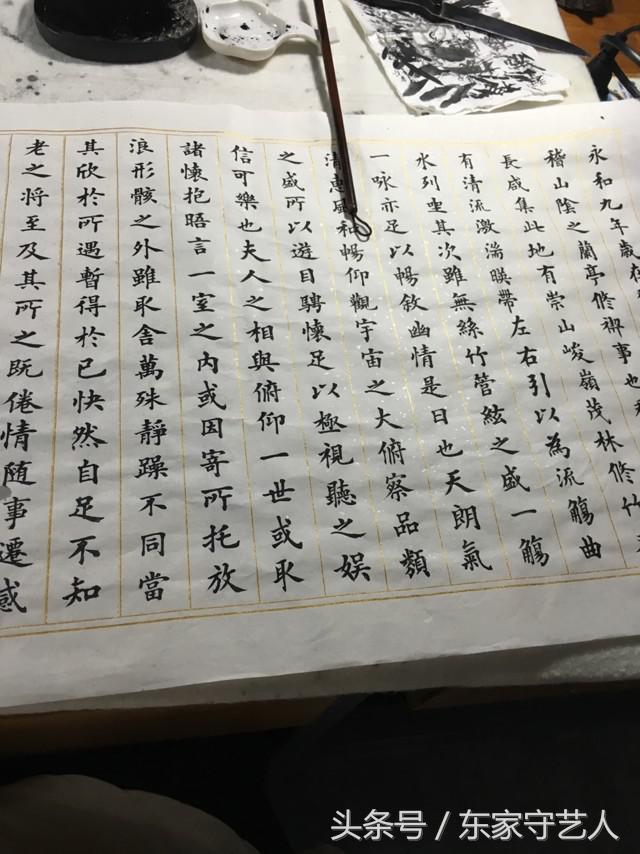 永和九年歲在
稽山陰之蘭亭修禊事也
長咸集此地有崇山峻嶺茂林修竹
有清流激湍暎帶左右引以為流觴曲
水列坐其次雖無絲竹管絃之盛一觴
一咏亦足以暢敘幽情是日也天朗氣
清惠風和暢仰觀宇宙之大俯察品類
之盛所以遊目騁懷足以極視聽之娛
信可樂也夫人之相與俯仰一世或取
諸懷抱晤言一室之內或因寄所托放
浪形骸之外雖取舍萬殊靜躁不同當
其欣於所遇暫得於已快然自足不知
老之将至及其所之既倦情随事遷感
头条号 / 东家守艺人